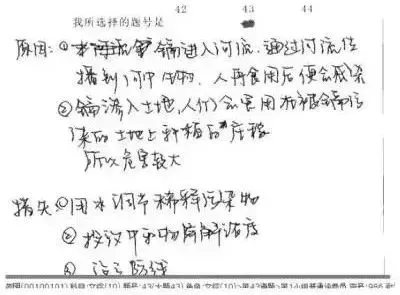 42 43 44
我所选择的题号是
原因:①镉进入河流,通过河流传
播到河中生物,人再食用后便会感染
②镉渗入土地,人们会食用在被镉污
染的土地上种植的庄稼
所以危害较大
措失①用水调节稀释污染物
②投放中和物降解浓度
③